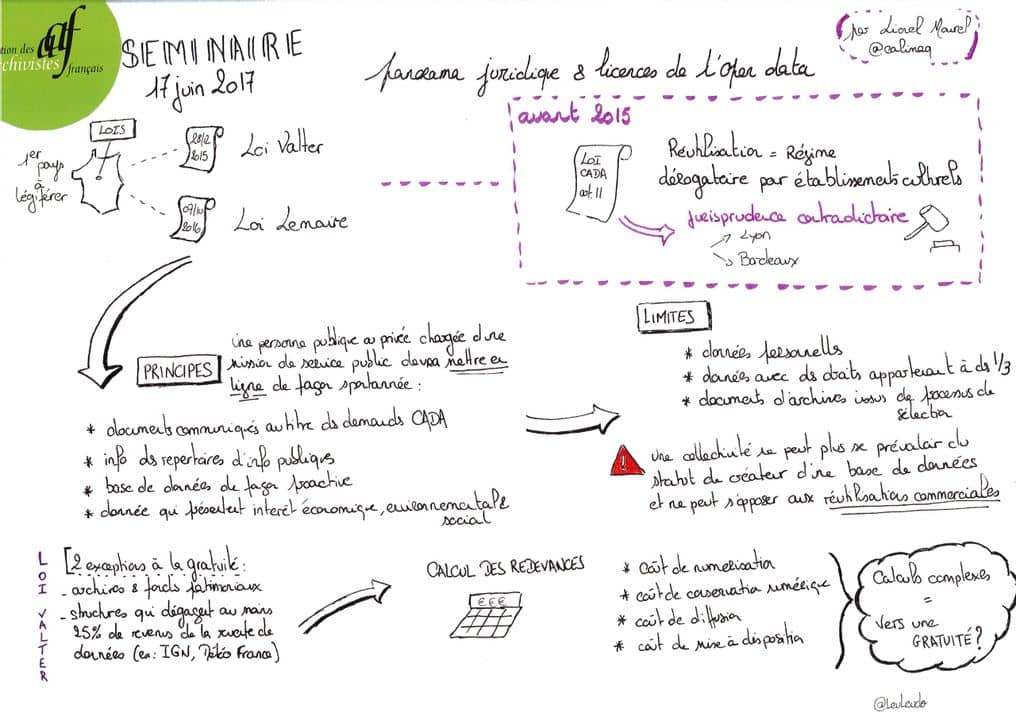 tion des
chivistes
français
aaf
SEMINAIRE
17 juin 2017
panorama juridique & licences de l'open data
par Lionel Maurel
@calimaq
LOIS
1er
pays
à
légiférer
28/12
2015
Loi Valter
07/10
2016
Loi Lemaire
avant 2015
Loi
CADA
art 11
Réutilisation = Régime
dérogatoire par établissements culturels
jurisprudence contradictoire
Lyon
Bordeaux
PRINCIPES
Une personne publique ou privée chargée d'une
mission de service public devra mettre en
ligne de façon spontannée :
* documents communiqués au titre ds demands CADA
* info ds repertoires d'info publiques
* base de données de façon proactive
* donnée qui présentent interêt économique, environnemental &
social
LIMITES
* données personnelles
* données avec ds droits appartenant à ds 1/3
* documents d'archives issus de processus de
sélection
! Une collectivité ne peut plus se prévaloir du
statut de créateur d'une base de données
et ne peut s'opposer aux réutilisations commerciales
LOI VALTER
[2 exceptions à la gratuité :
- archives & fonds patrimoniaux
- structures qui dégagent au moins
25% de revenus de la revente de
données (ex: IGN, Météo France)
CALCUL DES REDEVANCES
€€€
* Coût de numérisation
* coût de conservation numérique
* coût de diffusion
* coût de mise à disposition
Calculs complexes
=
vers une
GRATUITÉ?